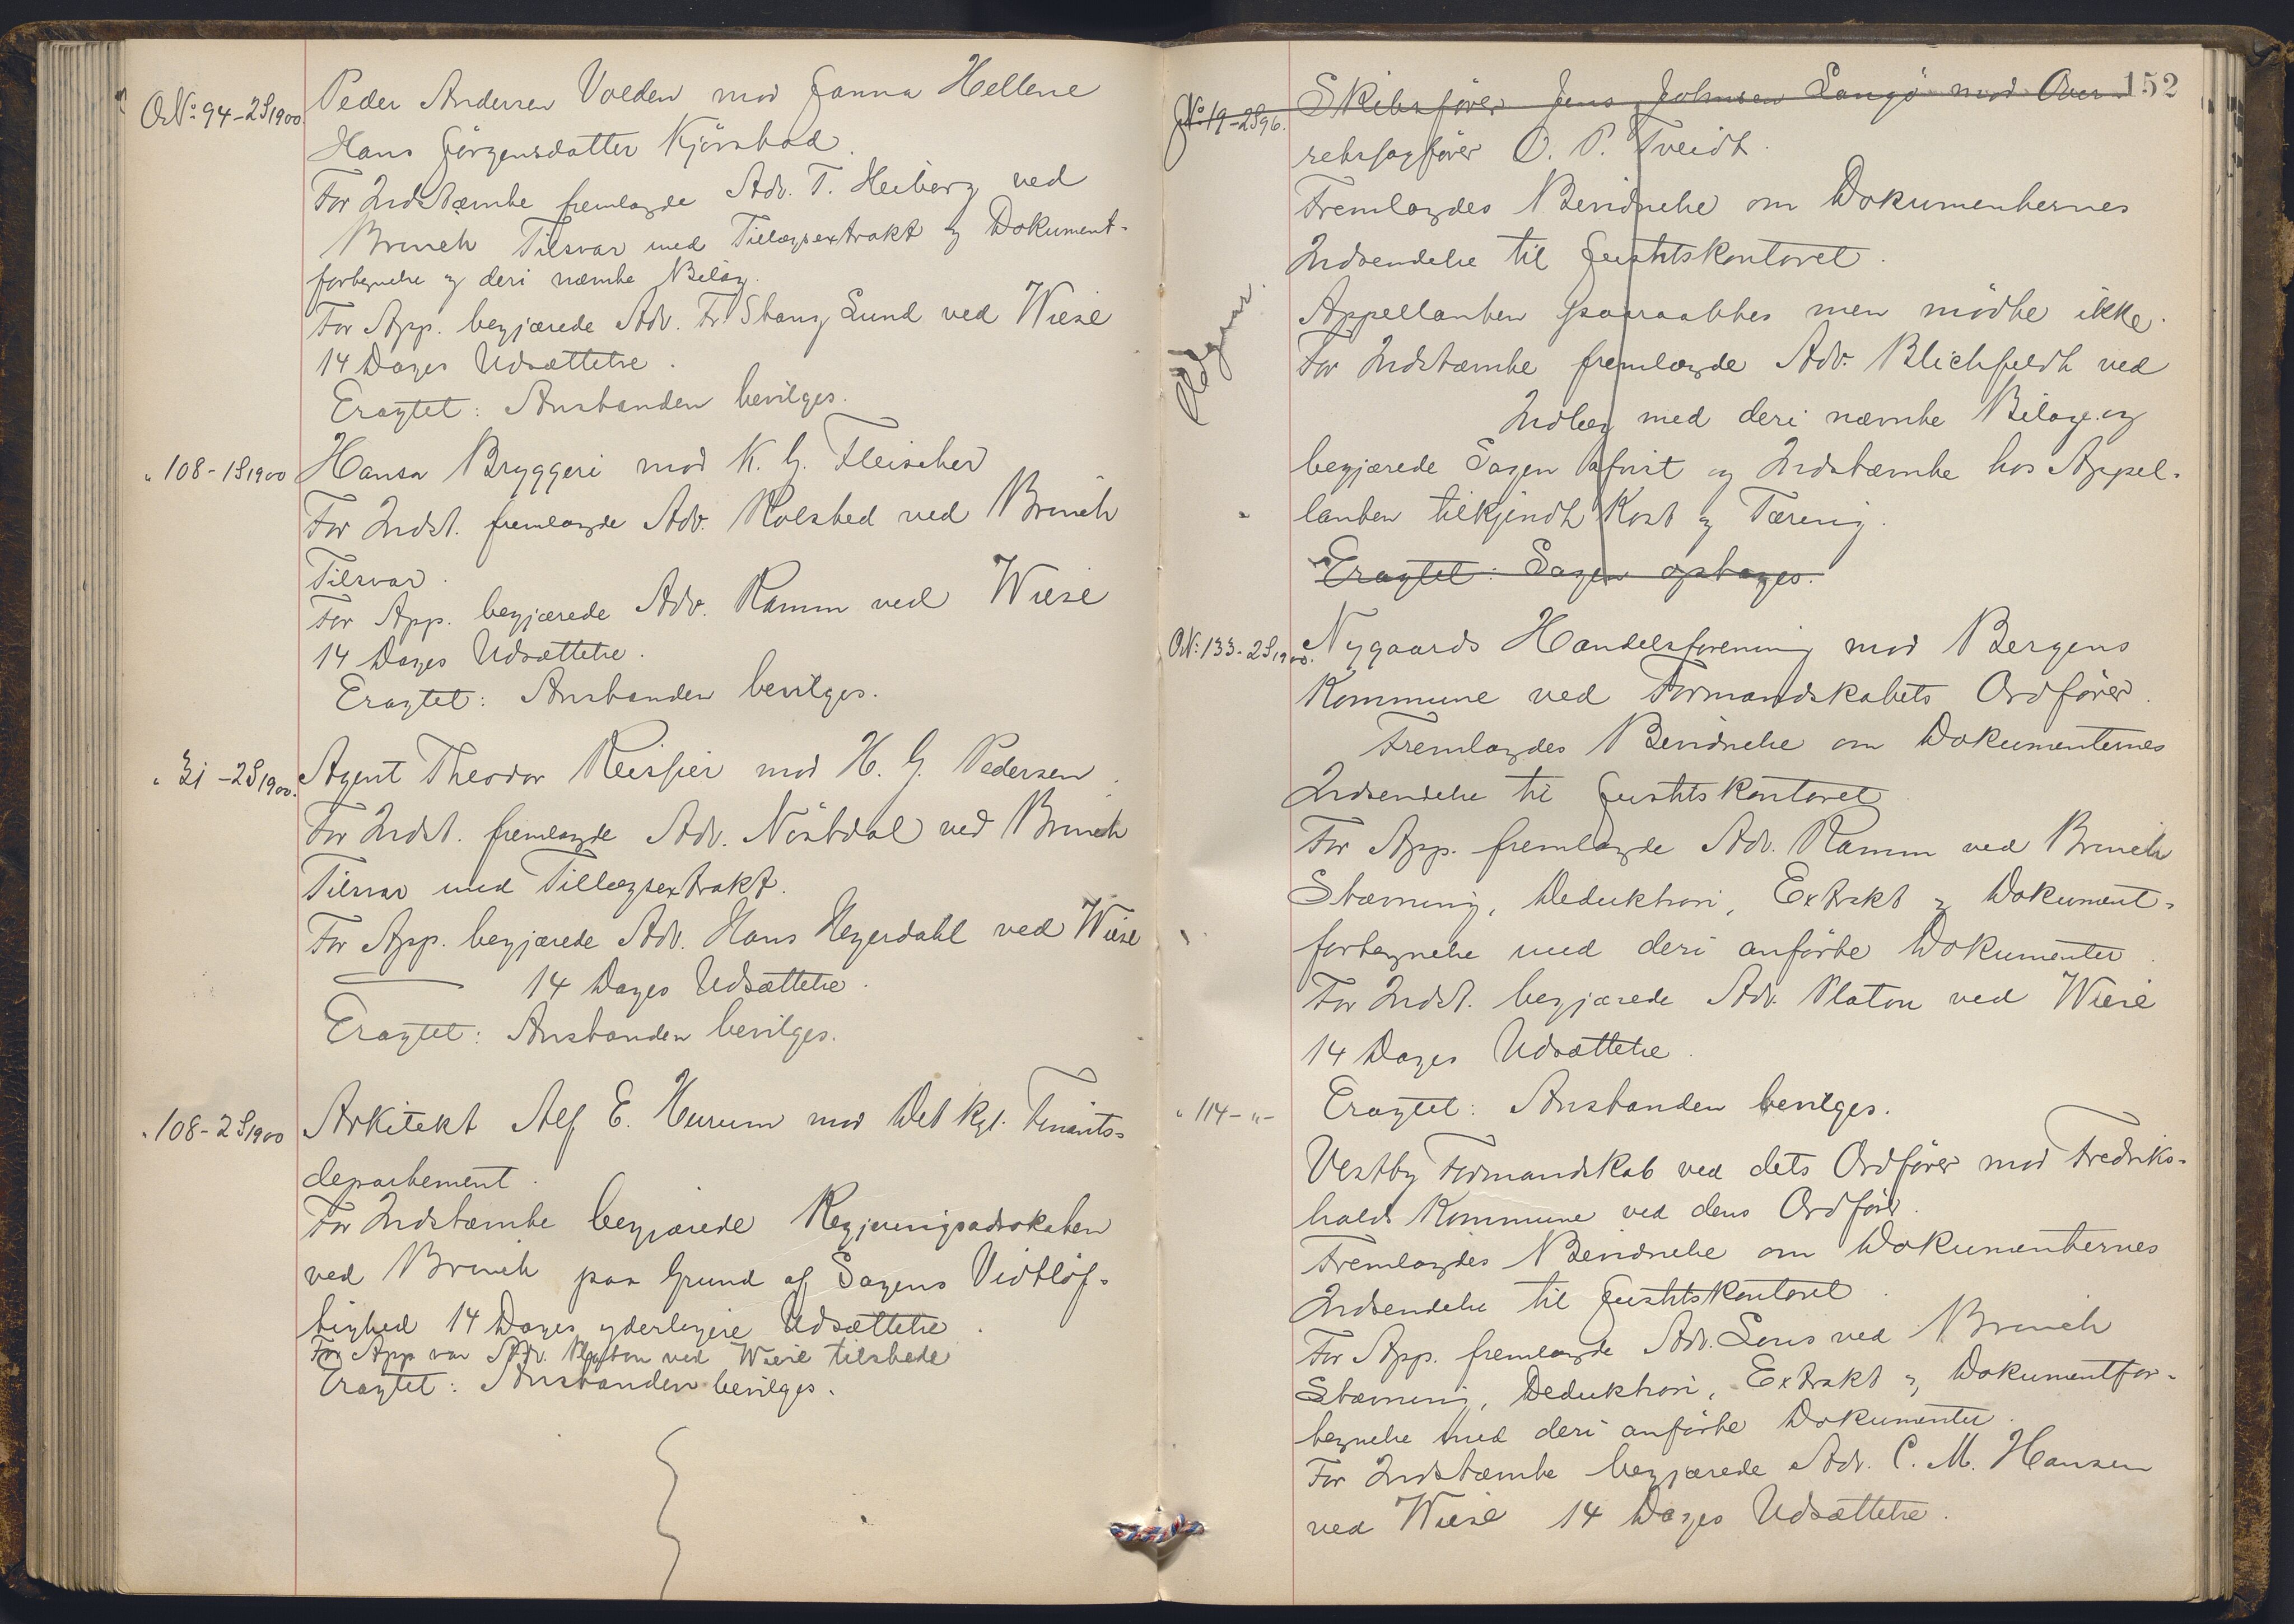 O.No. 94-2S1900. Peder Andersen Volden mod Janna Hellene
Hans Jörgensdatter Kjörstad.
For Indstæmte fremlagde Adv. T. Heiberg ved
Brinch Tilsvar med Tillægsextrakt og Dokument-
fortegnelse og deri nævnte Bilag.
For App. begjærede Adv. Fr. Stang Lund ved Wiese
14 Dages Udsættelse.
Eragtet: Anstanden bevilges.
" 108-1S1900 Hansa Bryggeri mod K. G. Fleischer
For Indst. fremlagde Adv. Rolsted ved Brinch
Tilsvar.
For App. begjærede Adv. Ramm ved Wiese
14 Dages Udsættelse.
Eragtet: Anstanden bevilges.
" 31-2S1900. Agent Theodor Reissier mod H. G. Pedersen.
For Indst. fremlagde Adv. Nöstdal ved Brinch
Tilsvar med Tillægsextrakt.
For App. begjærede Adv. Hans Heyerdahl ved Wiese
14 Dages Udsættelse.
Eragtet: Anstanden bevilges.
" 108-2S1900 Arkitekt Alf E. Hurum mod Det kgl. Finants-
departement.
For Indstæmte begjærede Regjeringsadvokaten
ved Brinch paa Grund af Sagens Vidtløf-
tighed 14 Dages yderligere Udsættelse.
For App var Adv. Platou ved Wiese tilstede
Eragtet: Anstanden bevilges.
152
No. 19-2S96. Skibsfører Jens Johnsen Langö mod Over-
retssagfører O. P. Tveidt.
Fremlagdes Bevidnelse om Dokumenternes
Indsendelse til Justitskontoret.
Appellanten paaraabtes men mödte ikke.
For Indstæmte fremlagde Adv. Blichfeldt ved
Indlæg med deri nævnte Bilage og
begjærede Sagen afvist og Indstæmte hos Appel-
lanten tilkjendt Kost og Tæring.
Eragtet: Sagen optages.
Udgaar.
O.N: 133-2S1900. Nygaards Handelsforening mod Bergens
Kommune ved Formandskabets Ordfører.
Fremlagdes Bevidnelse om Dokumenternes
Indsendelse til Justitskontoret
For App. fremlagde Adv. Ramm ved Brinch
Stævning, Deduktion, Extrakt og Dokument-
fortegnelse med deri anförte Dokumenter.
For Indst. begjærede Adv. Platou ved Wiese
14 Dages Udsættelse.
Eragtet: Anstanden bevilges.
" 114-"- Vestby Formandskab ved dets Ordfører mod Fredriks-
halds Kommune ved dens Ordfører.
Fremlagdes Bevidnelse om Dokumenternes
Indsendelse til Justitskontoret.
For App. fremlagde Adv. Lous ved Brinch
Stævning, Deduktion, Extrakt og Dokumentfor-
tegnelse med deri anförte Dokumenter.
For Indstæmte begjærede Adv. C. M. Hansen
ved Wiese 14 Dages Udsættelse.